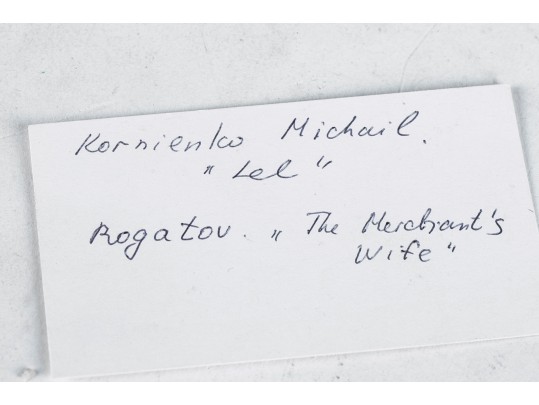 Kornienko Michail.
"Lel"
Rogatov. "The Merchant's
Wife"